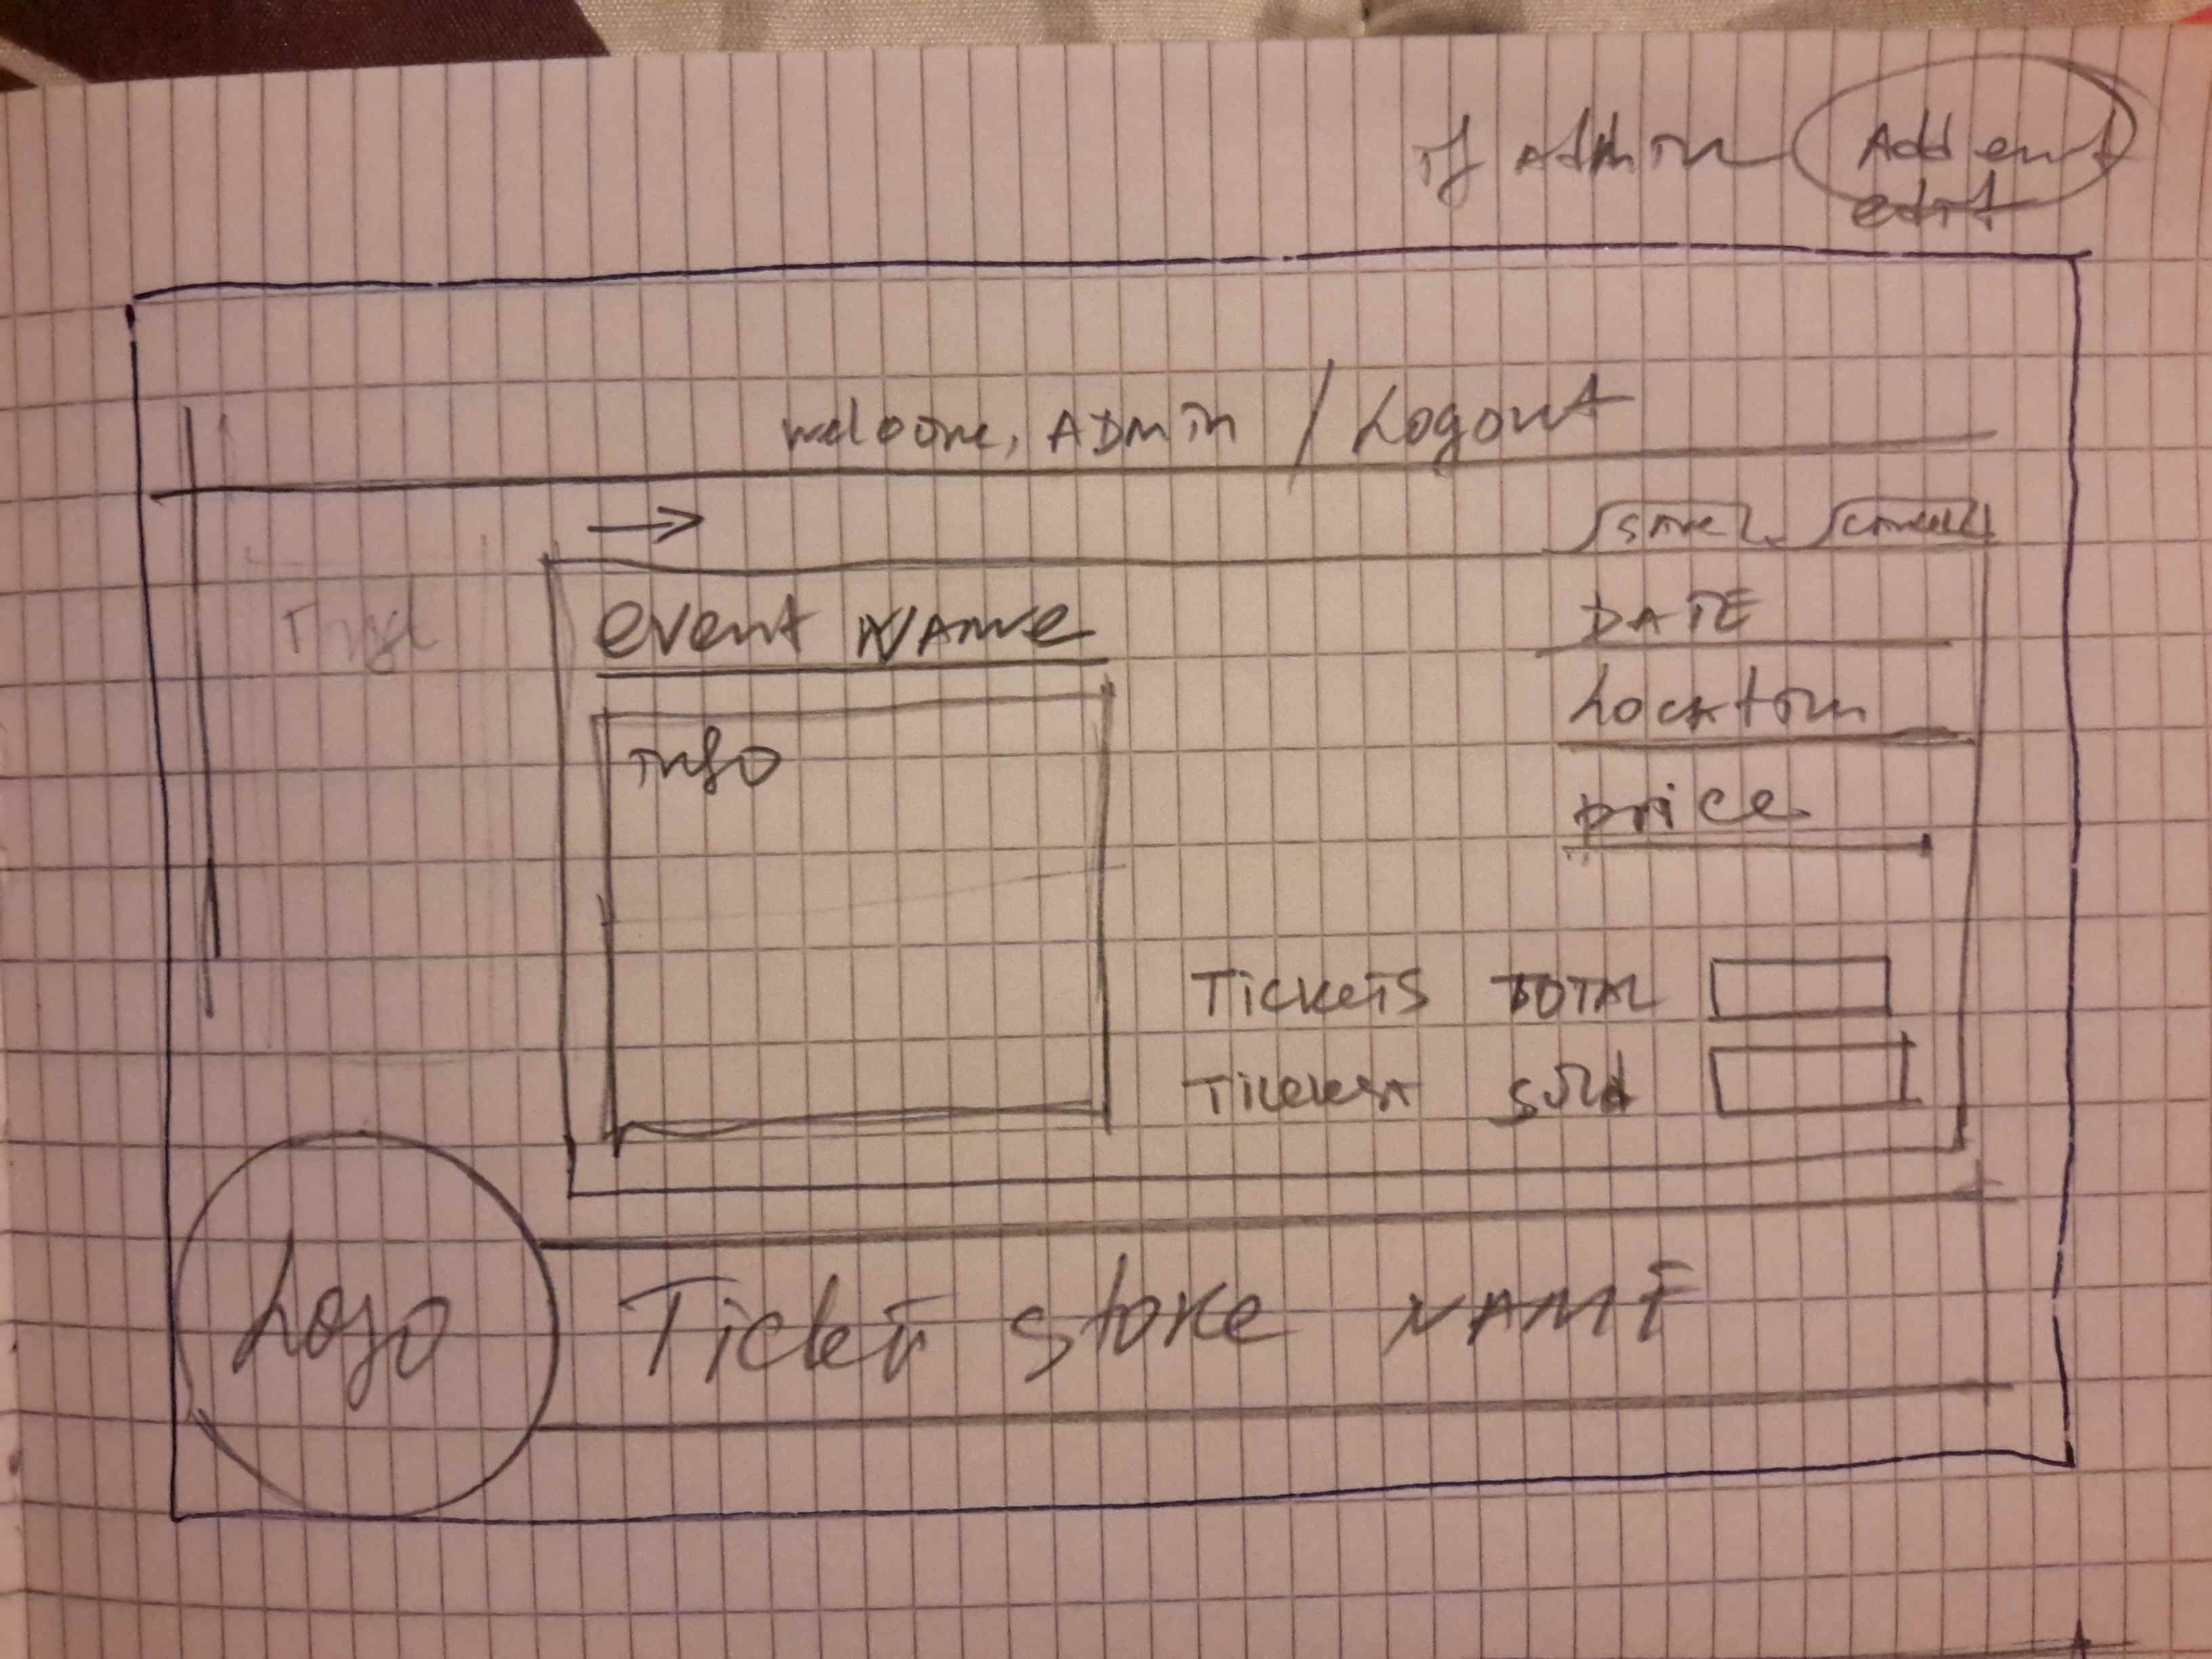 if Admin Add
edit
welcome, ADmin / Logout
SAVE CANCEL
event NAme
DATE
Location
info
price
TICKETS TOTAL
sold
Logo Ticket store NAME